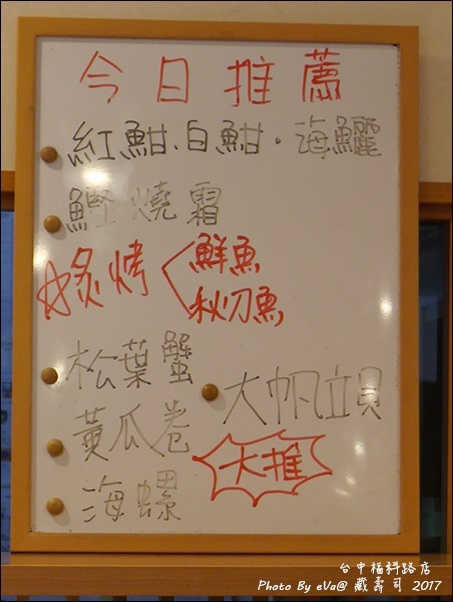 今日推薦
紅魽、白魽·海鱺
鰹燒霜
☆炙烤
鮮魚
秋刀魚
松葉蟹
大帆立貝
黃瓜卷
大推
海螺
台中福科路店
Photo By eVa@ 藏壽司 2017